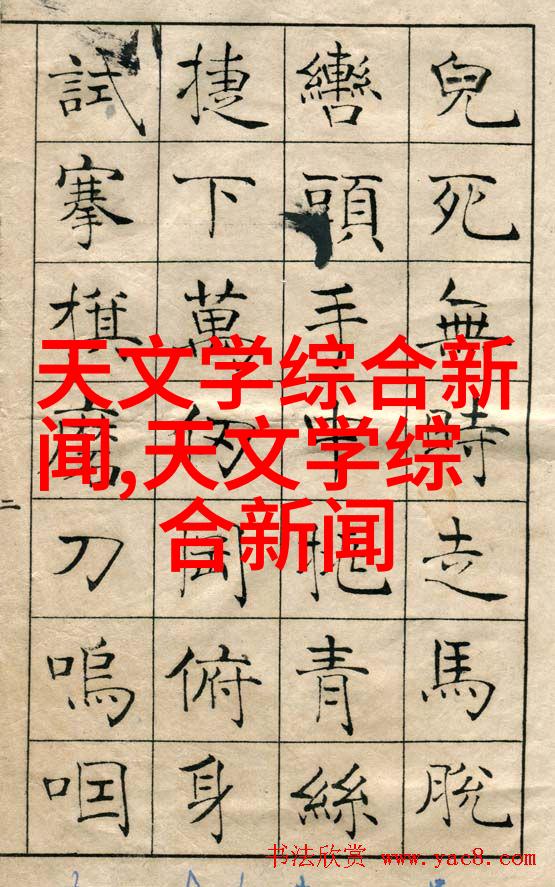 兒死無時走馬脫
轡頭手中挑青絲
捷下萬仞岡俯身
試搴旗磨刀嗚咽
二
天文学综合新
闻,天文学综
合新闻
书法欣赏 www.yac8.com